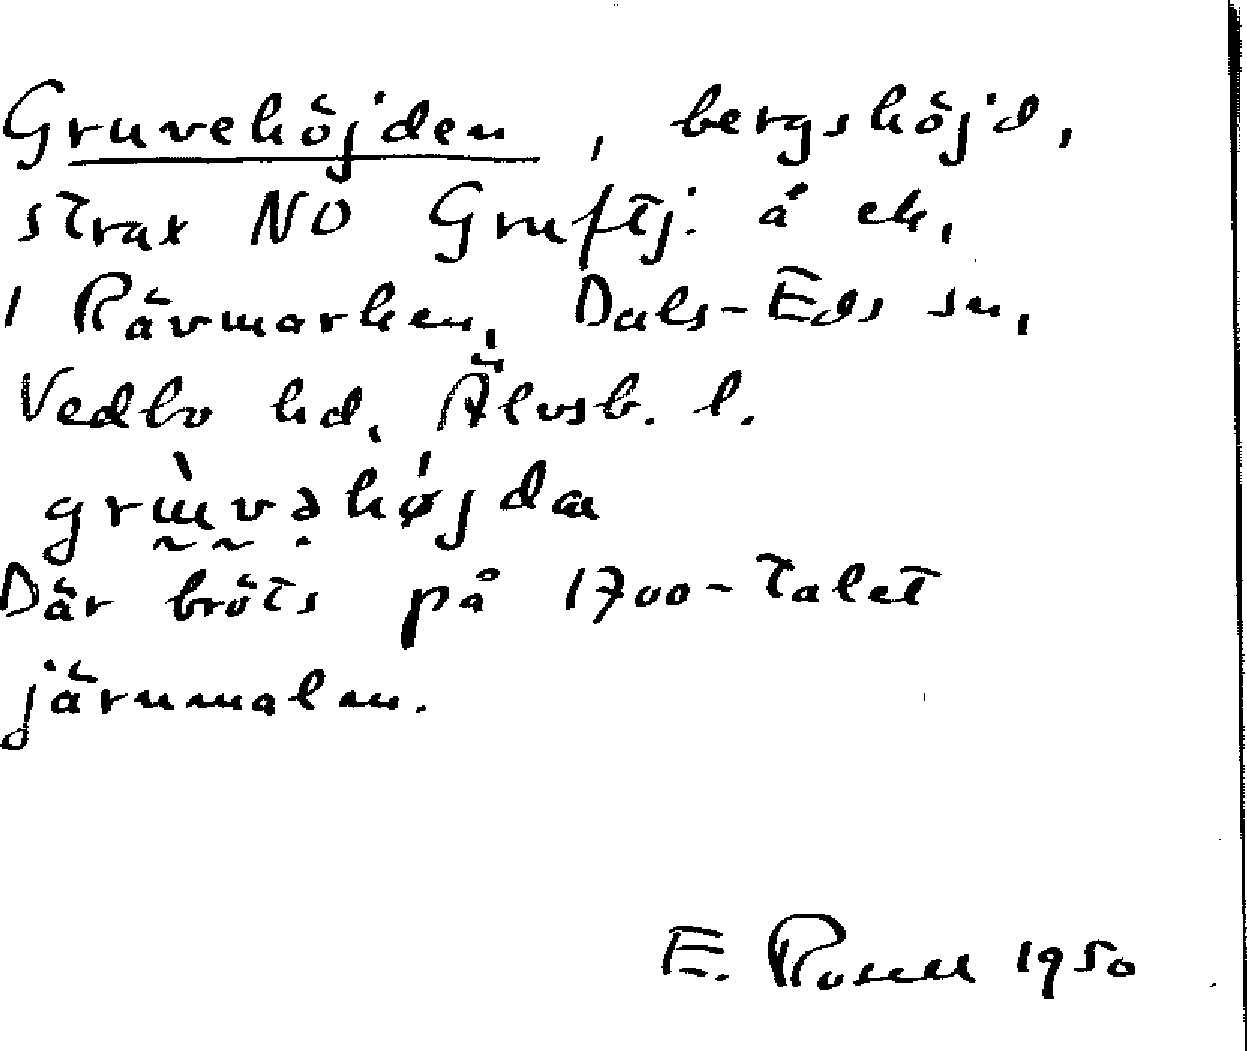 Gruvehöjden, bergshöjd,
strax NO Gruftj. å ek,
i Rävmarken, Dals-Eds sn,
Vedbo hd, Älvsb. l.
Där bröts på 1700-talet
järnmalm.
E. Rosell 1950